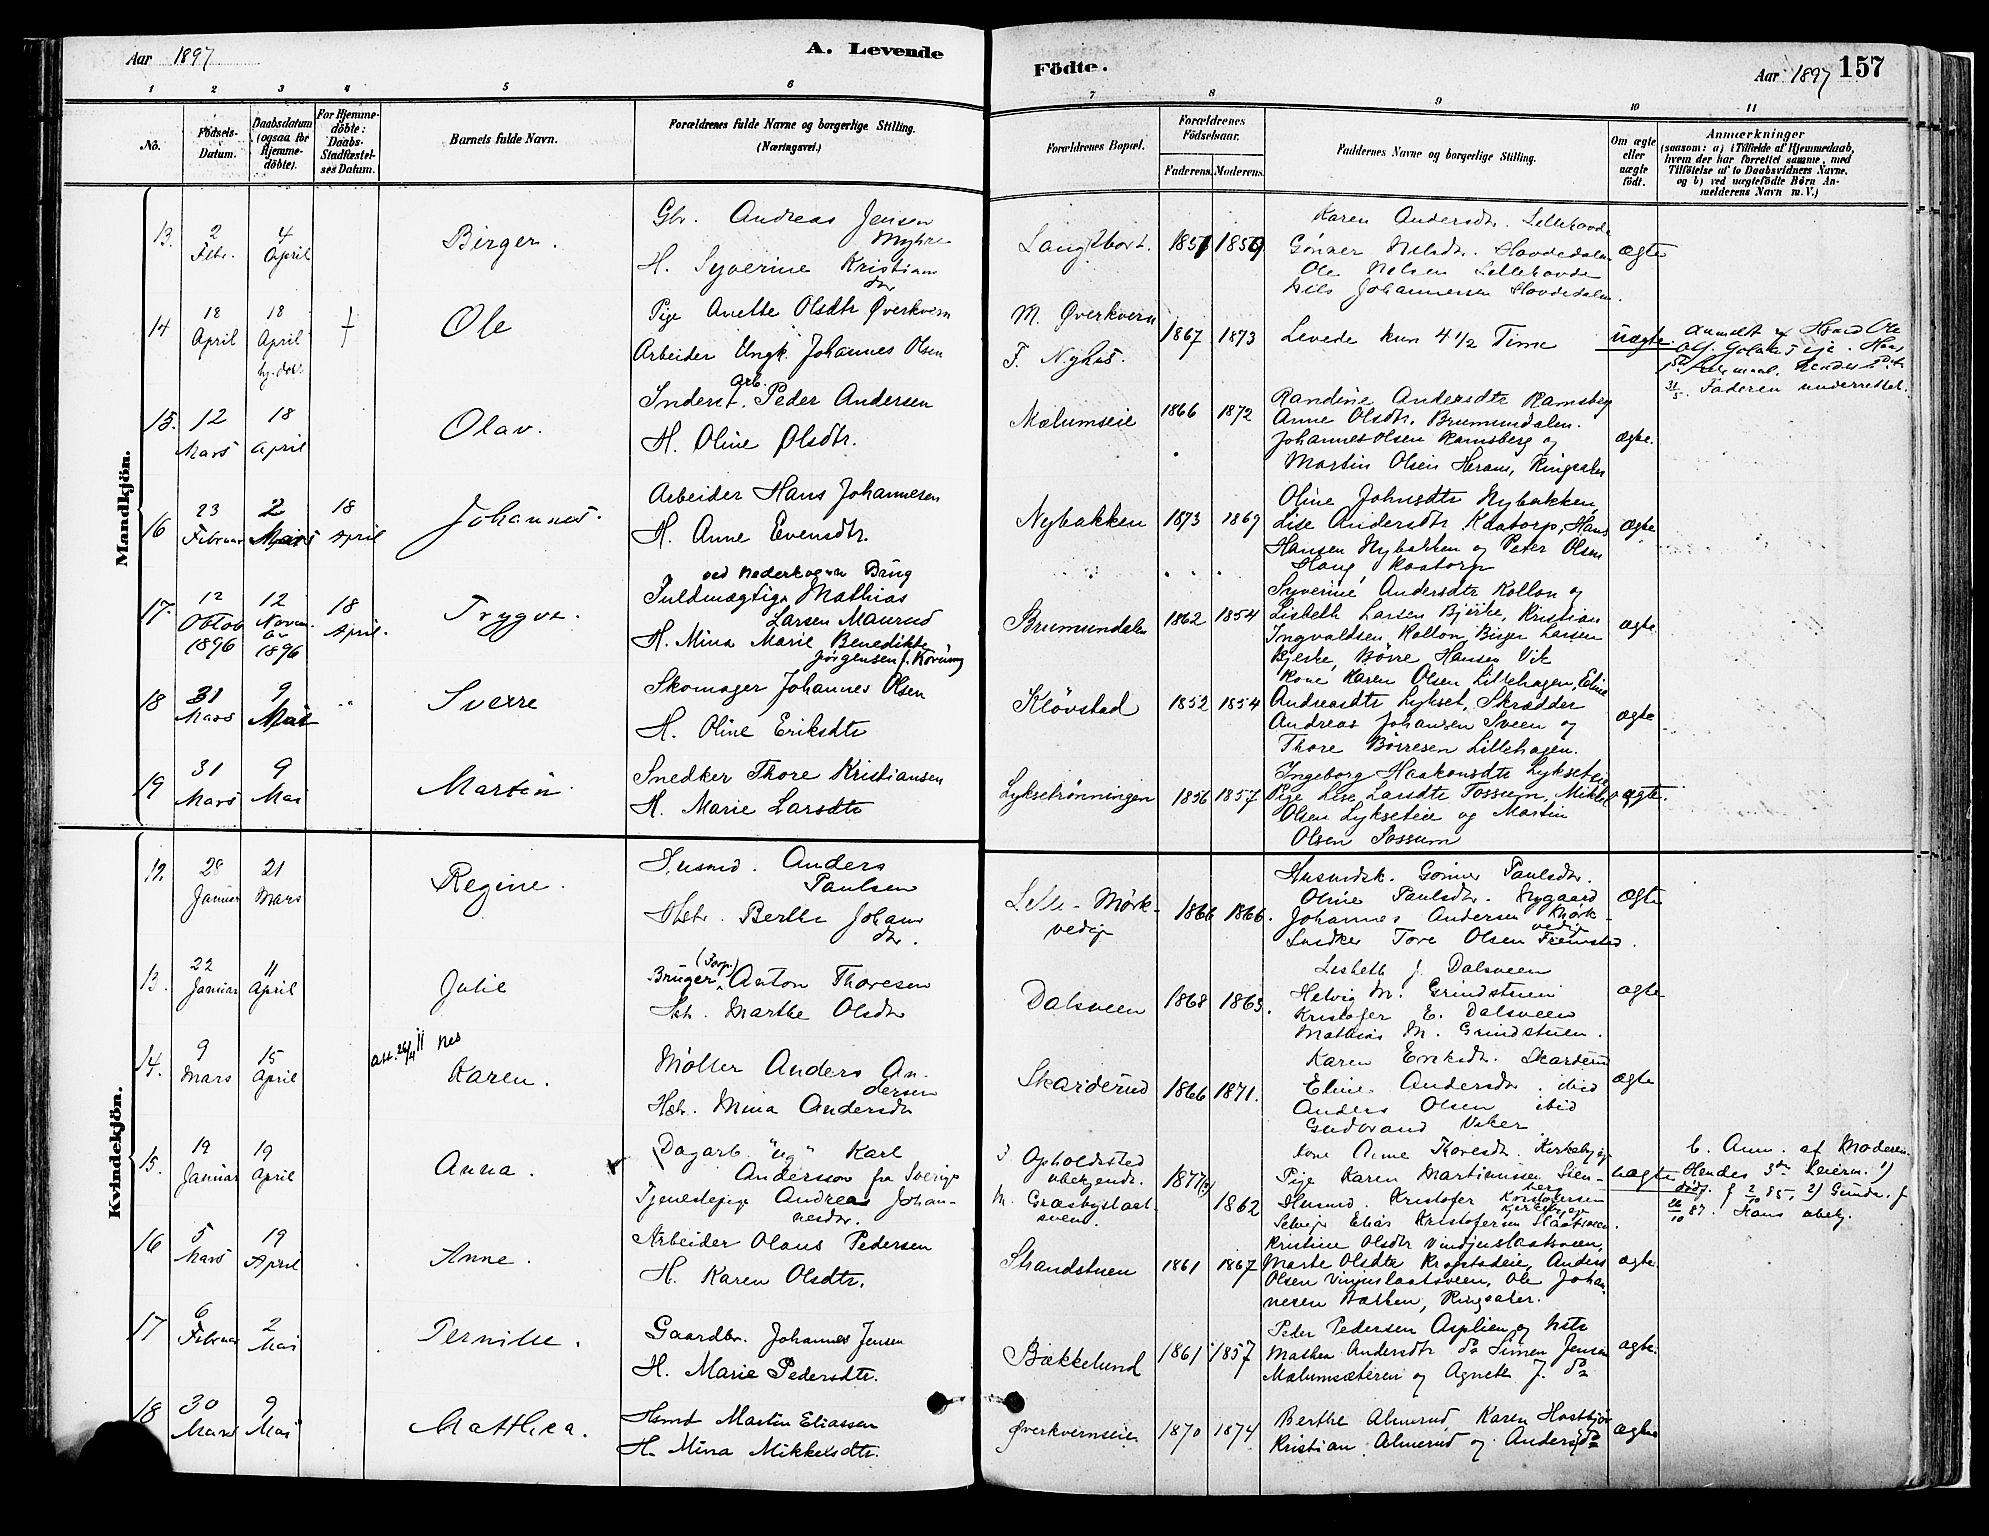 Aar 1897
A. Levende
Födte.
Aar 1897
157
1 2 3 4 5 6 7 8 9 10 11
No.
Födsels-Datum.
Daabsdatum (ogsaa for Hjemme-döbte).
For Hjemme-döbte: Daabs-Stadfæstel-ses Datum.
Barnets fulde Navn.
Forældrenes fulde Navne og borgerlige Stilling. (Næringsvei.)
Forældrenes Bopæl.
Forældrenes Födselsaar.
Faderens. Moderens.
Faddernes Navne og borgerlige Stilling.
Om ægte eller uægte födt.
Anmærkninger
(saasom: a) i Tilfælde af Hjemmedaab, hvem der har forrettet samme, med Tilföielse af to Daabsvidners Navne. og b) ved uægtefödte Börn An-melderens Navn m. V.)
Mandkjön.
13. 2 Febr. 4 April
Birger.
Gbr. Andreas Jensen Myhre
H. Syverine Kristians dtr
1859
Karen Andersdtr. Lillehovde
Gönner Nilsdtr. Hovdedalen
Ole Nelsen Lillehovde
Nils Johannesen Hovdedalen.
ægte
14 18 April 18 April
Ole
Pige Anette Olsdtr Øverkvern
Arbeider Ungk. Johannes Olsen
M. Øverkvern
F. Nyhus.
1867 1873
Levede kun 4 1/2 Time
uægte.
Faderen underrettet.
15. 12 Mars 18 April
Olav.
Inderst. arb. Peder Andersen
H. Oline Olsdtr.
Mælumseie
1866 1872
Randine Andersdtr Ramsberg
Anne Olsdtr. Brumundalen.
Johannes Olsen Ramsberg og
Martin Olsen Heram, Ringsaker
ægte.
16 23 Februar 2 Mars 18 April
Johannes.
Arbeider Hans Johannesen
H. Anne Evensdtr.
Nybakken
1873 1869
Oline Johnsdtr Nybakken,
Lise Andersdtr Kaatorp, Hans
Hansen Nybakken og Peter Olsen
Haug Kaatorp
ægte
17. 12 Oktob 1896 12 Novem 1896 18 April.
Trygve.
Fuldmægtig Mathias
Larsen Maurud
H. Mina Marie Benedikte
Jørgensen f. Korüng
Brumundalen
1862 1854
Syverine Andersdtr Kollon og
Lisbeth Larsen Bjerke, Kristian
Ingvaldsen Kollon, Birger Larsen
Bjerke, Børre Hansen Vik
ægte
18 31 Mars 9 Mai "
Sverre
Skomager Johannes Olsen
H. Oline Eriksdtr
Kløvstad
1852 1854
Kone Karen Olsen Lillehagen, Eline
Andreasdtr Lykset, Skrædder
Andreas Johansen Sveen og
Thore Börresen Lillehagen.
ægte
19 31 Mars 9 Mai
Martin
Snedker Thore Kristiansen
H. Marie Larsdtr
Lyksetrønningen
1856 1857
Ingeborg Haakonsdtr Lykseteie
Pige Lise Larsdtr Tossum, Mikkel
Olsen Lykseteie og Martin
Olsen Tossum
ægte.
Kvindekjön.
12. 28 Januar 21 Mars
Regine.
Husmd. Anders Paulsen
Hstr. Berthe Johans dtr.
Lille-Mörk-vedeje
1866 1866.
Husmdsk. Gönner Paulsdtr.
Oline Paulsdtr. Nygaard
Johannes Andersen Mørkvedeje
Snedker Tore Olsen Fremstad.
ægte
13. 22 Januar 11 April
Julie
Bruger (Forp.) Anton Thoresen
Hstr. Marthe Olsdtr
Dalsveen
1868 1863.
Lisbeth J. Dalsveen
Helvig M. Grindstuen
Kristofer E. Dalsveen
Mathias M. Grindstuen.
ægte
14. 9 Mars 15 April
Att. 26/4 11 Nes
Karen.
Møller Anders An-dersen
Hstr. Mina Andersdtr
Skarderud
1866 1871.
Karen Eriksdtr. Skarderud
Eline Andersdtr. ibid
Anders Olsen ibid
Gudbrand Viker
ægte
15. 19 Januar 19 April
Anna.
Dagarb. "Ug" Karl
Andersson fra Sverige
Tjenestepige Andrea Johan-nesdtr.
F. Opholdssted ubekjendt.
M. Græsbyslaat-sveen.
1877(?) 1862
Kone Anne Toresdtr. Kirkebyeje
Pige Karen Martinussen Sten-berg
Husmd. Kristofer Kristofersen Kirkebyeje
Selveje Elias Kristofersen Slaatsveen.
uægte
C. Anm. af Moderen.
Hendes 3die Leierm. 1)
16 5 Mars 19 April
Anne.
Arbeider Olaus Pedersen
H. Karen Olsdtr.
Strandstuen
1861 1867
Kristine Olsdtr Vinjuslaatsveen,
Marte Olsdtr Kragstadeie, Anders
Olsen Vinjuslaatsveen, Ole Johan-
nesen Bakken, Ringsaker.
ægte.
17 6 Februar 2 Mai
Pernille.
Gaardbr. Johannes Jensen
H. Marie Pedersdtr.
Bækkelund
1861 1857
Peder Pedersen Asplien og Hstr
Mathea Andersdtr do Simen Jensen
Mælumsæteren og Agnete J. do
ægte.
18 30 Mars 9 Mai
Mathea.
Hsmd Martin Eliassen
H. Mina Mikkelsdtr.
Øverkvernseie
1870 1874
Berthe Almerud Karen Hostbjør
Kristian Almerud og Anders do
ægte